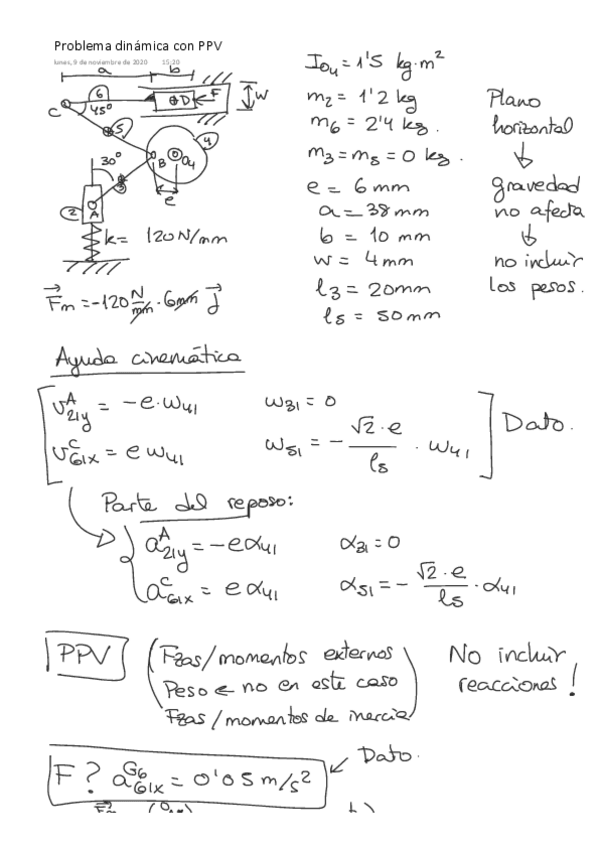 Problema dinámica con PPV
lunes, 9 de noviembre de 2020 15:20
a b
6 D F W
C 45°
5
4
30° B O4
3 e
2 A
k = 120 N/mm
F⃗m = -120 N/mm · 6mm j⃗
I_O4 = 1'5 kg·m²
m2 = 1'2 kg
m6 = 2'4 kg.
m3 = m5 = 0 kg.
e = 6 mm
a = 38 mm
b = 10 mm
w = 4 mm
l3 = 20mm
l5 = 50mm
Plano
horizontal
↓
gravedad
no afecta
↓
no incluir
los pesos.
Ayuda cinemática
v^A_21y = -e·ω41 ω31 = 0
v^C_61x = e ω41 ω51 = - √2·e / l5 · ω41
Dato.
Parte del reposo:
a^A_21y = -eα41 α31 = 0
a^C_61x = e α41 α51 = - √2·e / l5 · α41
PPV
Fzas/momentos externos
Peso ← no en este caso
Fzas/momentos de inercia
No incluir
reacciones!
F? a^G6_61x = 0'05 m/s² Dato.